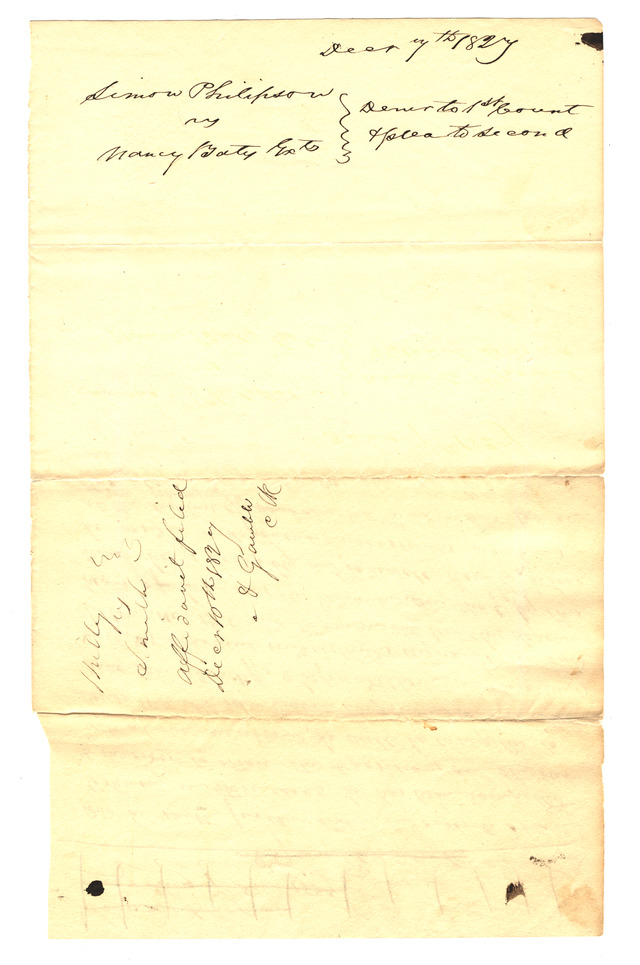 Decr 7th 1827
Simon Philipson
vs
Nancy Baty Exts
Demr to 1st Count
& plea to second
vs
Smith
affidavit filed
Decr 10th 1827
A Gamble
Clk